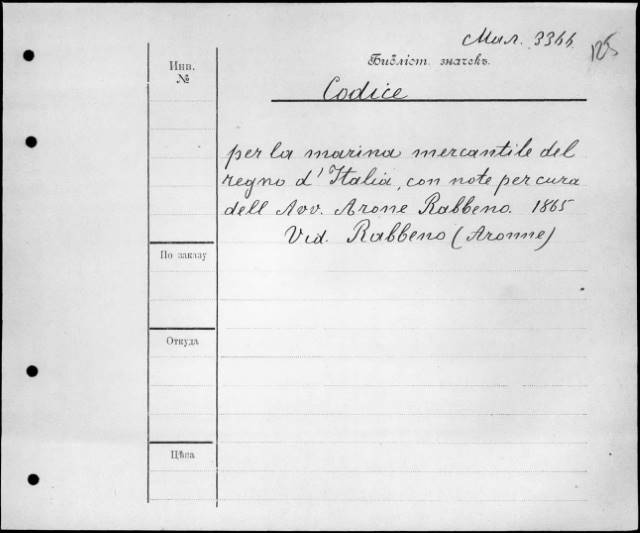 Мил. 3344.
Библіот. значекъ.
Инв.
№
Codice
per la marina mercantile del
regno d'Italia, con note per cura
dell Avv. Arone Rabbeno. 1865
Vid. Rabbeno (Aronne)
По заказу
Откуда
Цѣна